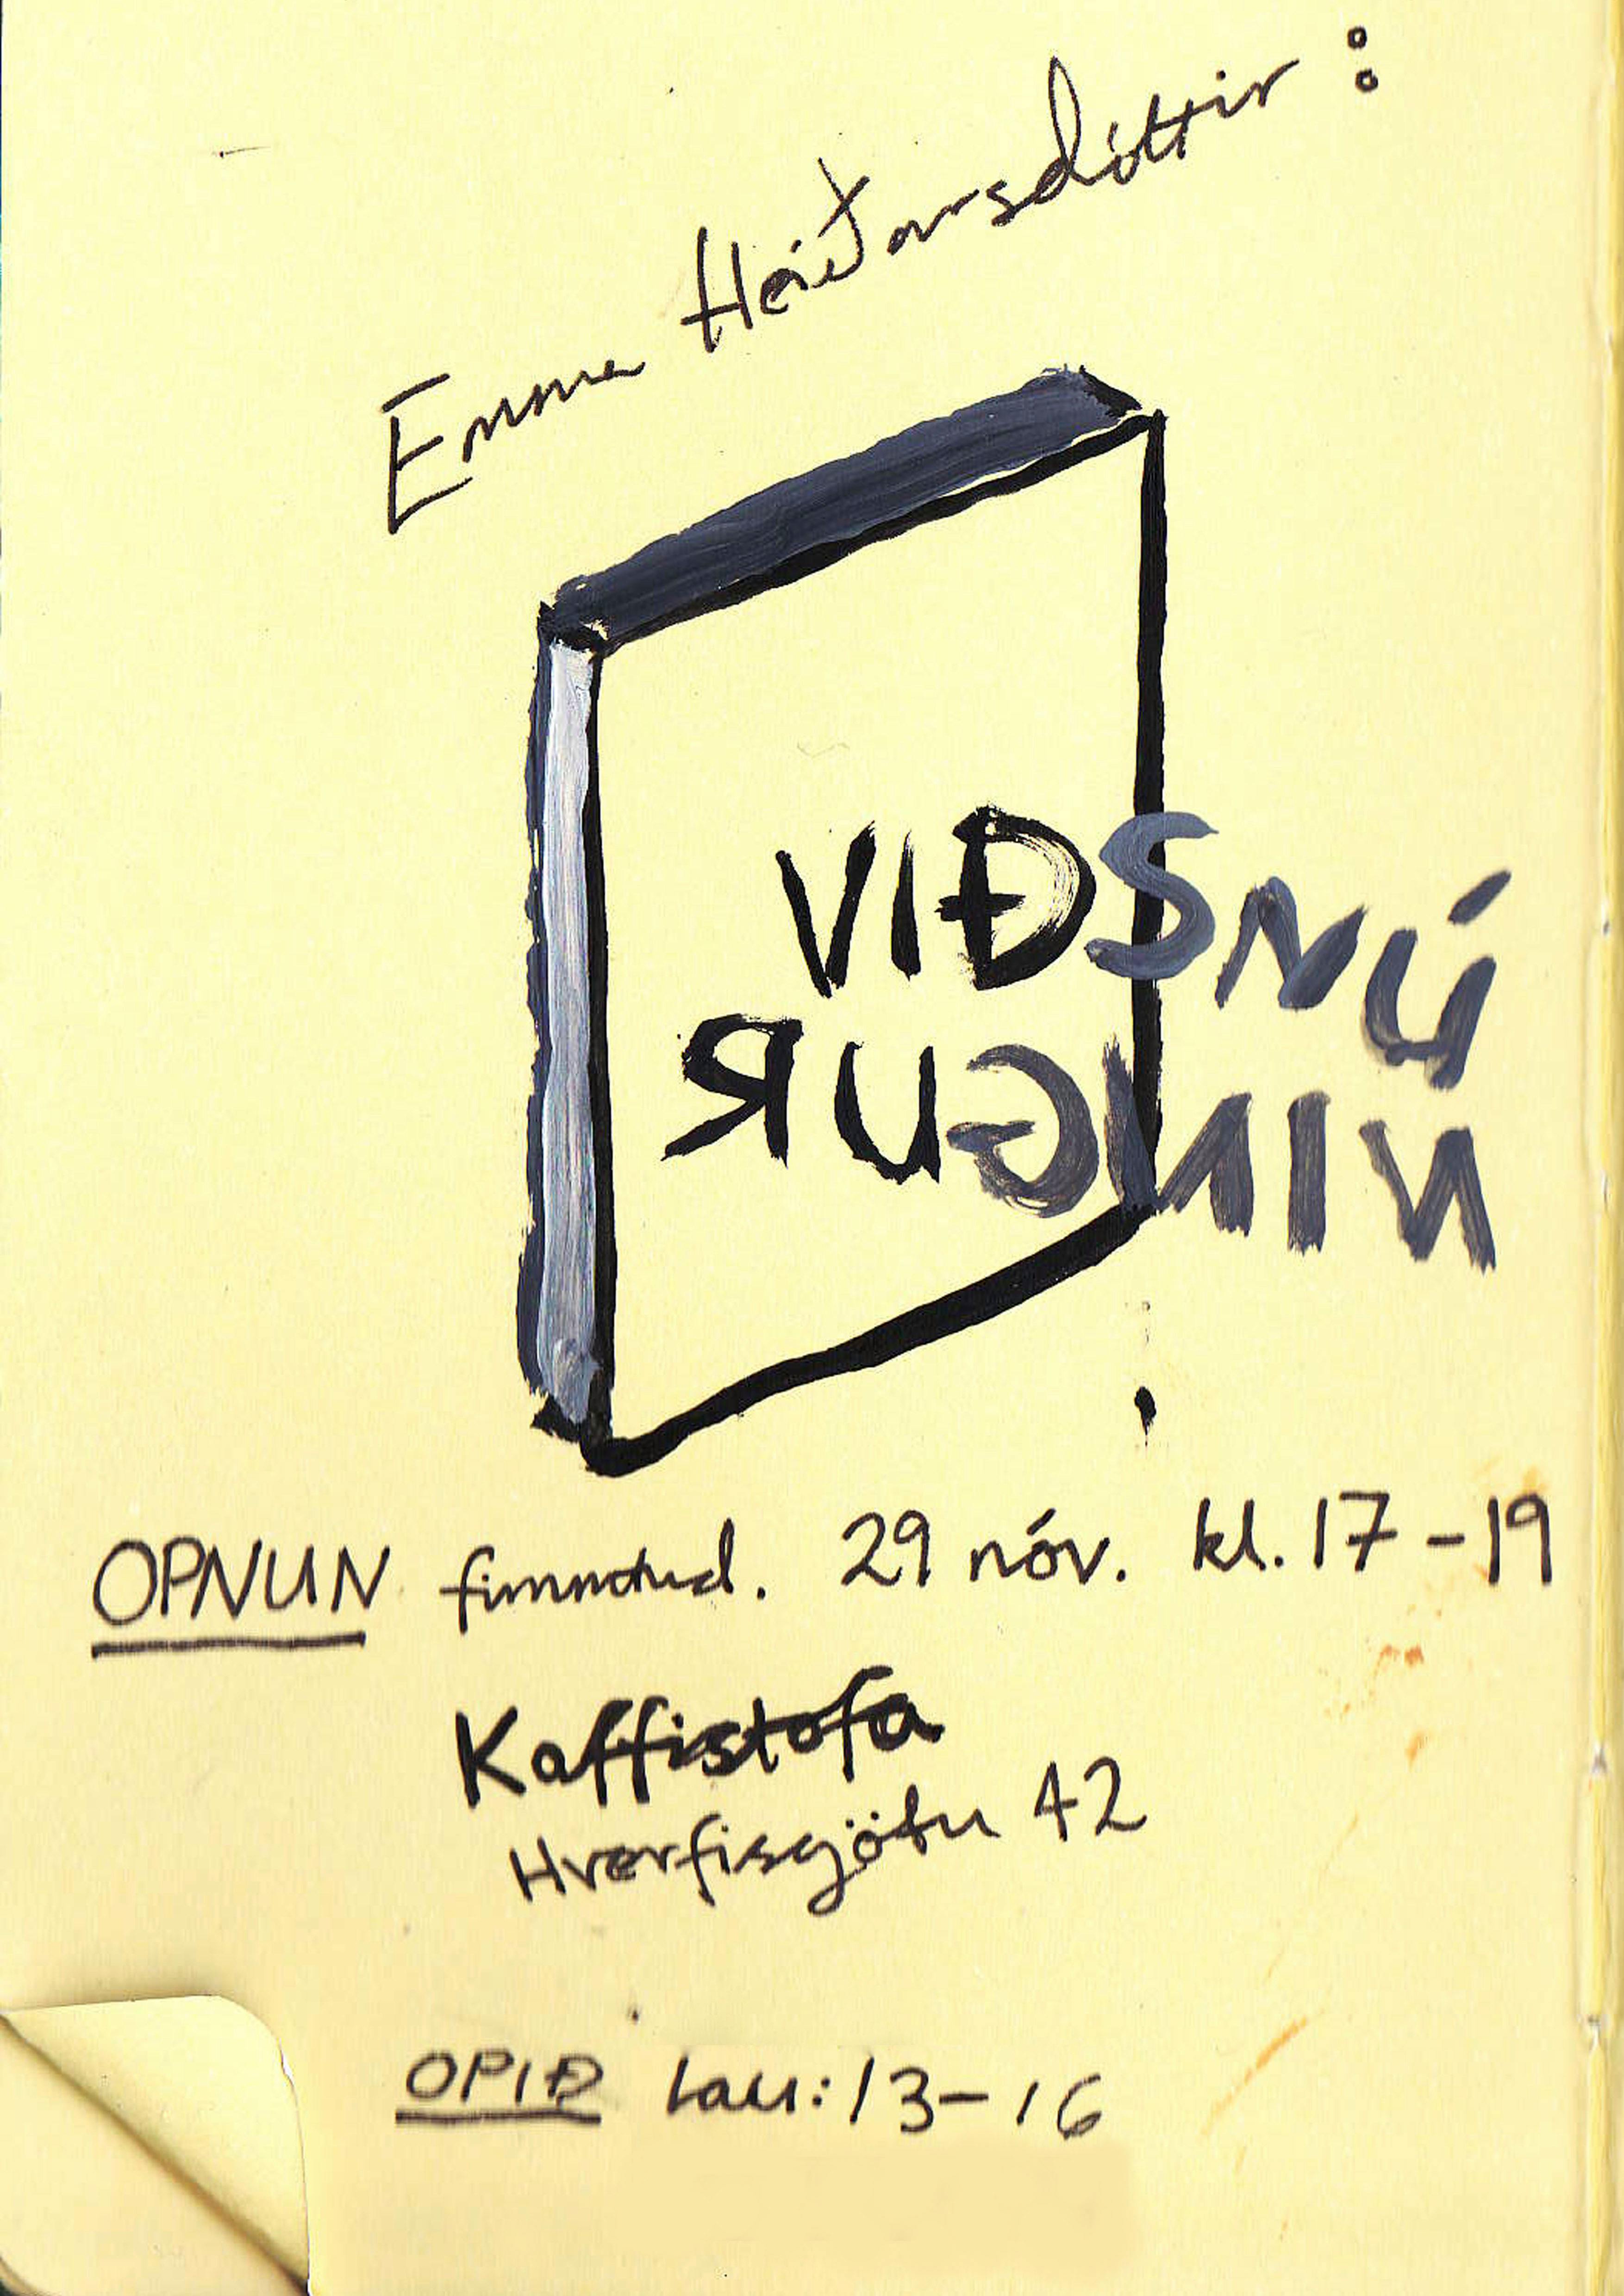 Emma Heiðarsdóttir :
VIÐSNÚ
NINGUR
OPNUN fimmtud. 29 nóv. kl. 17-19
Kaffistofa
Hverfisgötu 42
OPIÐ lau: 13-16